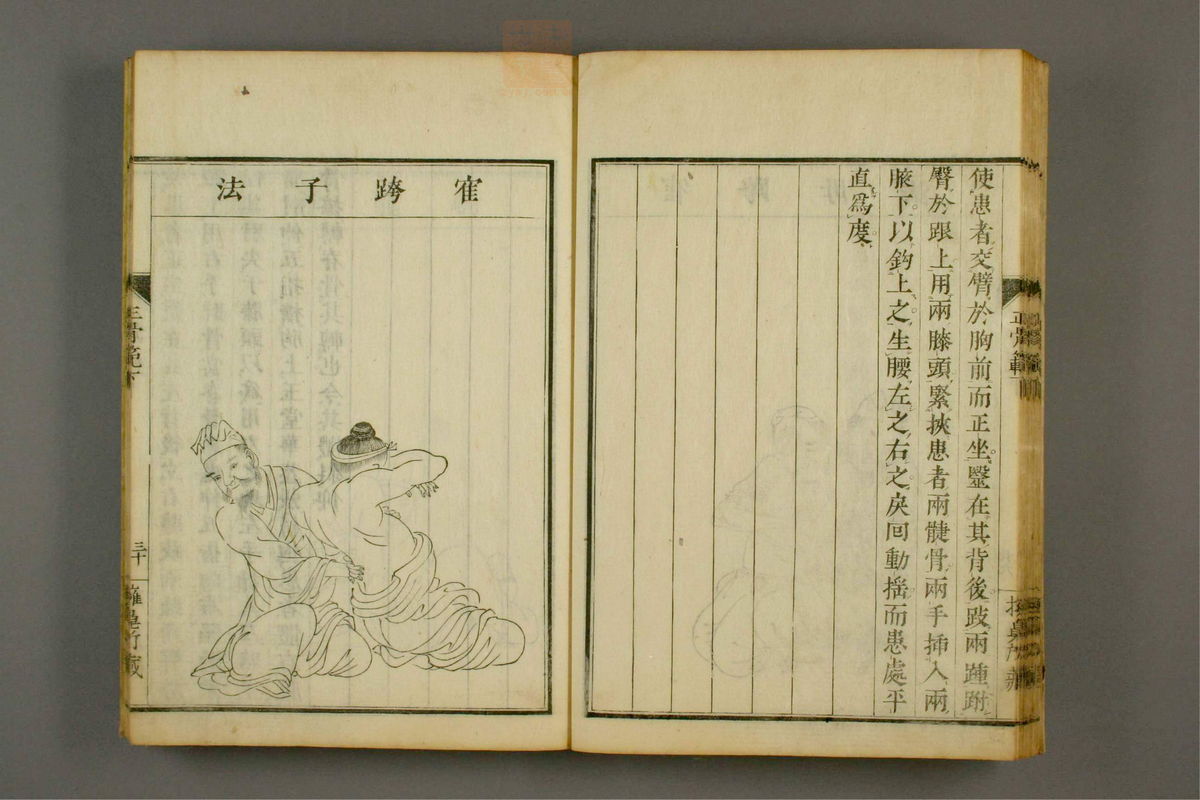 使患者交臂於胸前而正坐毉在其背後跂兩踵跗
臀於跟上用兩膝頭緊挾患者兩髀骨兩手插入兩
腋下以鈎上之生腰左之右之戾回動搖而患處平
直爲度
寉跨子法
正骨範下
三十
擁鼻所藏